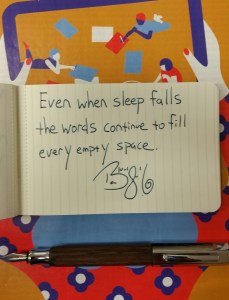 Even when sleep falls
the words continue to fill
every empty space.